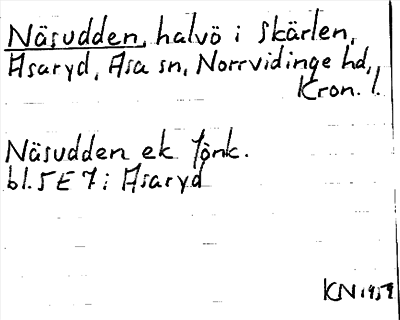 Näsudden, halvö i Skärlen,
Asaryd, Asa sn, Norrvidinge hd,
Kron. l.
Näsudden ek Jönk.
bl. 5E 7 i Asaryd
KN 1959